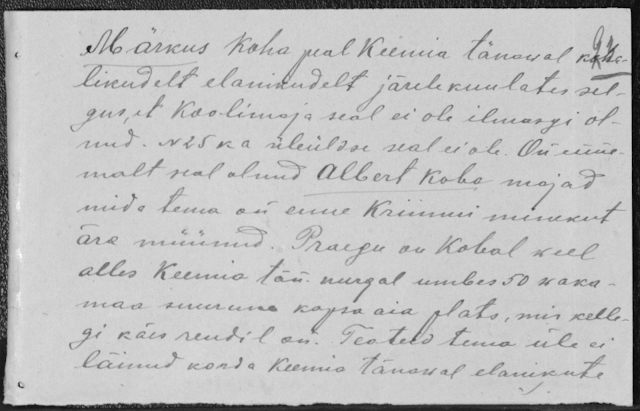 Märkus Koha peal Keemia tänawal koha-
likudelt elanikudelt järelekuulates sel-
gus, et Koolimaja seal ei ole ilmasgi ol-
nud. N 25 ka üleüldse seal ei ole. On enne-
malt seal olnud Albert Koba majad
mida tema on enne Kriimmi minekut
ära müünud. Praegu on Kobal weel
alles Keemia tän. nurgal umbes 50 waka-
maa suurune kapsa aia plats, mis kelle-
gi käes rendil on. Teateid tema üle ei
läinud korda Keemia tänawal elanikute